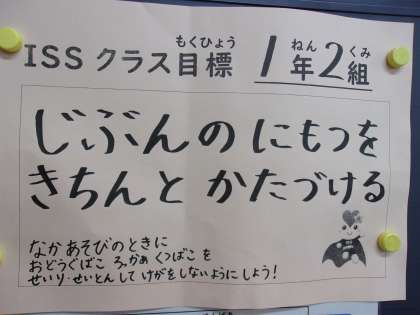 もくひょう ねん くみ
ISS クラス目標 1年2組
じぶんの にもつを
きちんと かたづける
なかあそびのときに
おどうぐばこ ろっかぁ くつばこ を
せいり・せいとん して けがをしないように しよう!